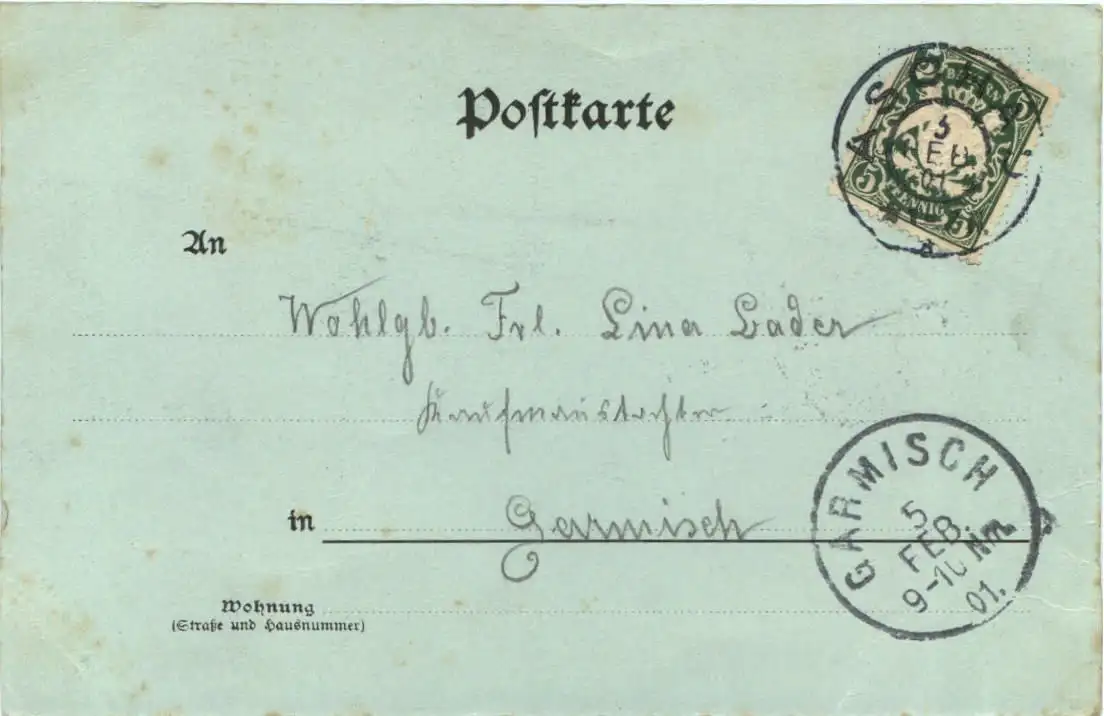 Postkarte
ASCHAU
5
FEB
01
5 5
PFENNIG
5 5
An
Wohlgb. Frl. Lina Bader
Kaufmannstochter
in Garmisch
GARMISCH
5
FEB.
9-10 Nm
01.
Wohnung
(Straße und Hausnummer)